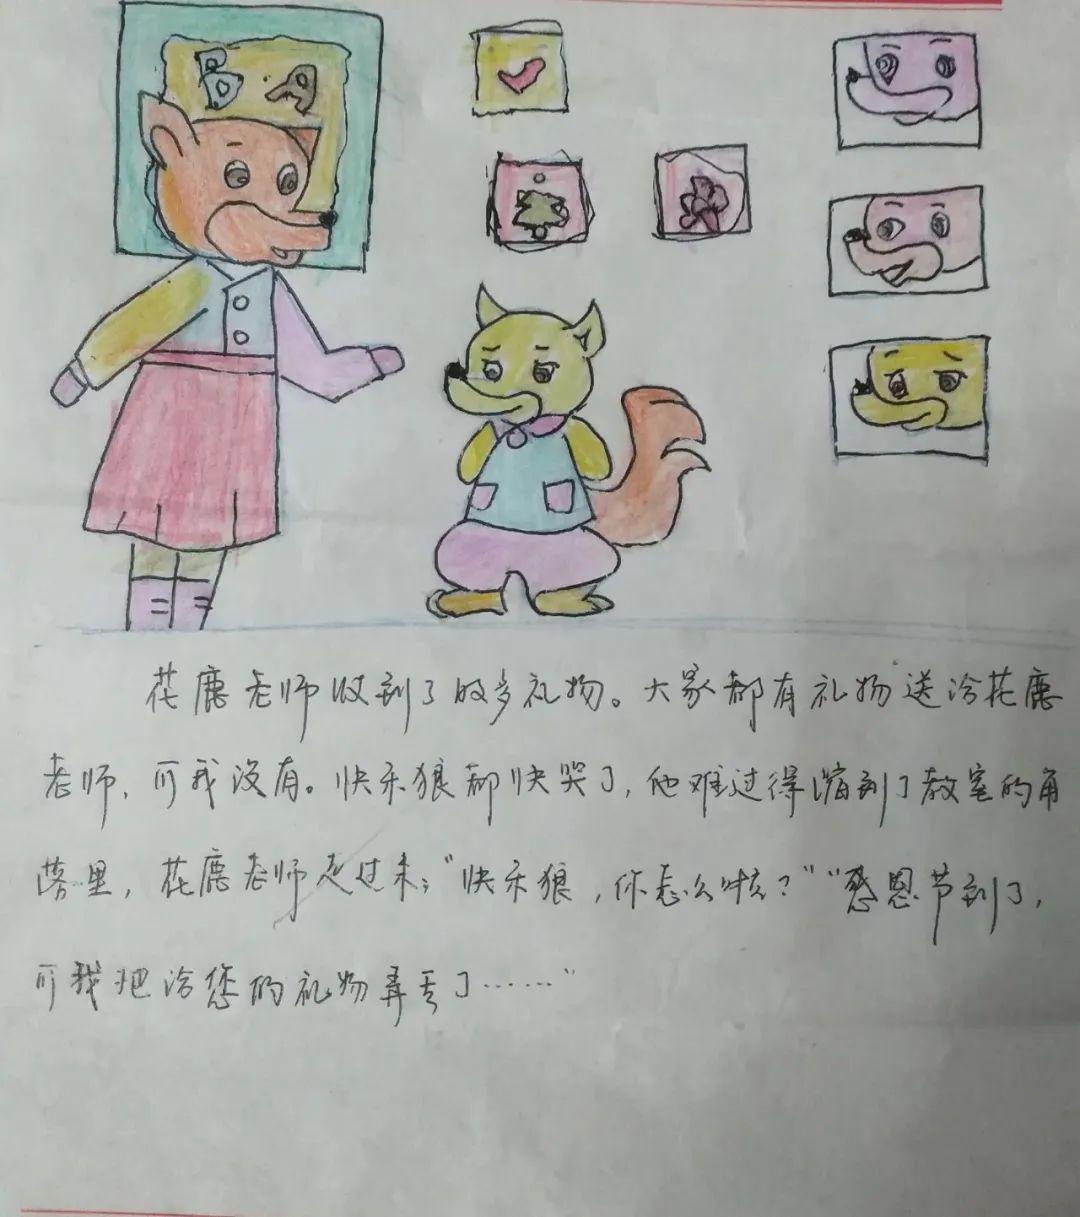 花鹿老师收到了好多礼物。大家都有礼物送给花鹿
老师，可我没有。快乐狼都快哭了，他难过得缩到了教室的角
落里，花鹿老师走过来："快乐狼，你怎么啦？""感恩节到了，
可我把给您的礼物弄丢了……"